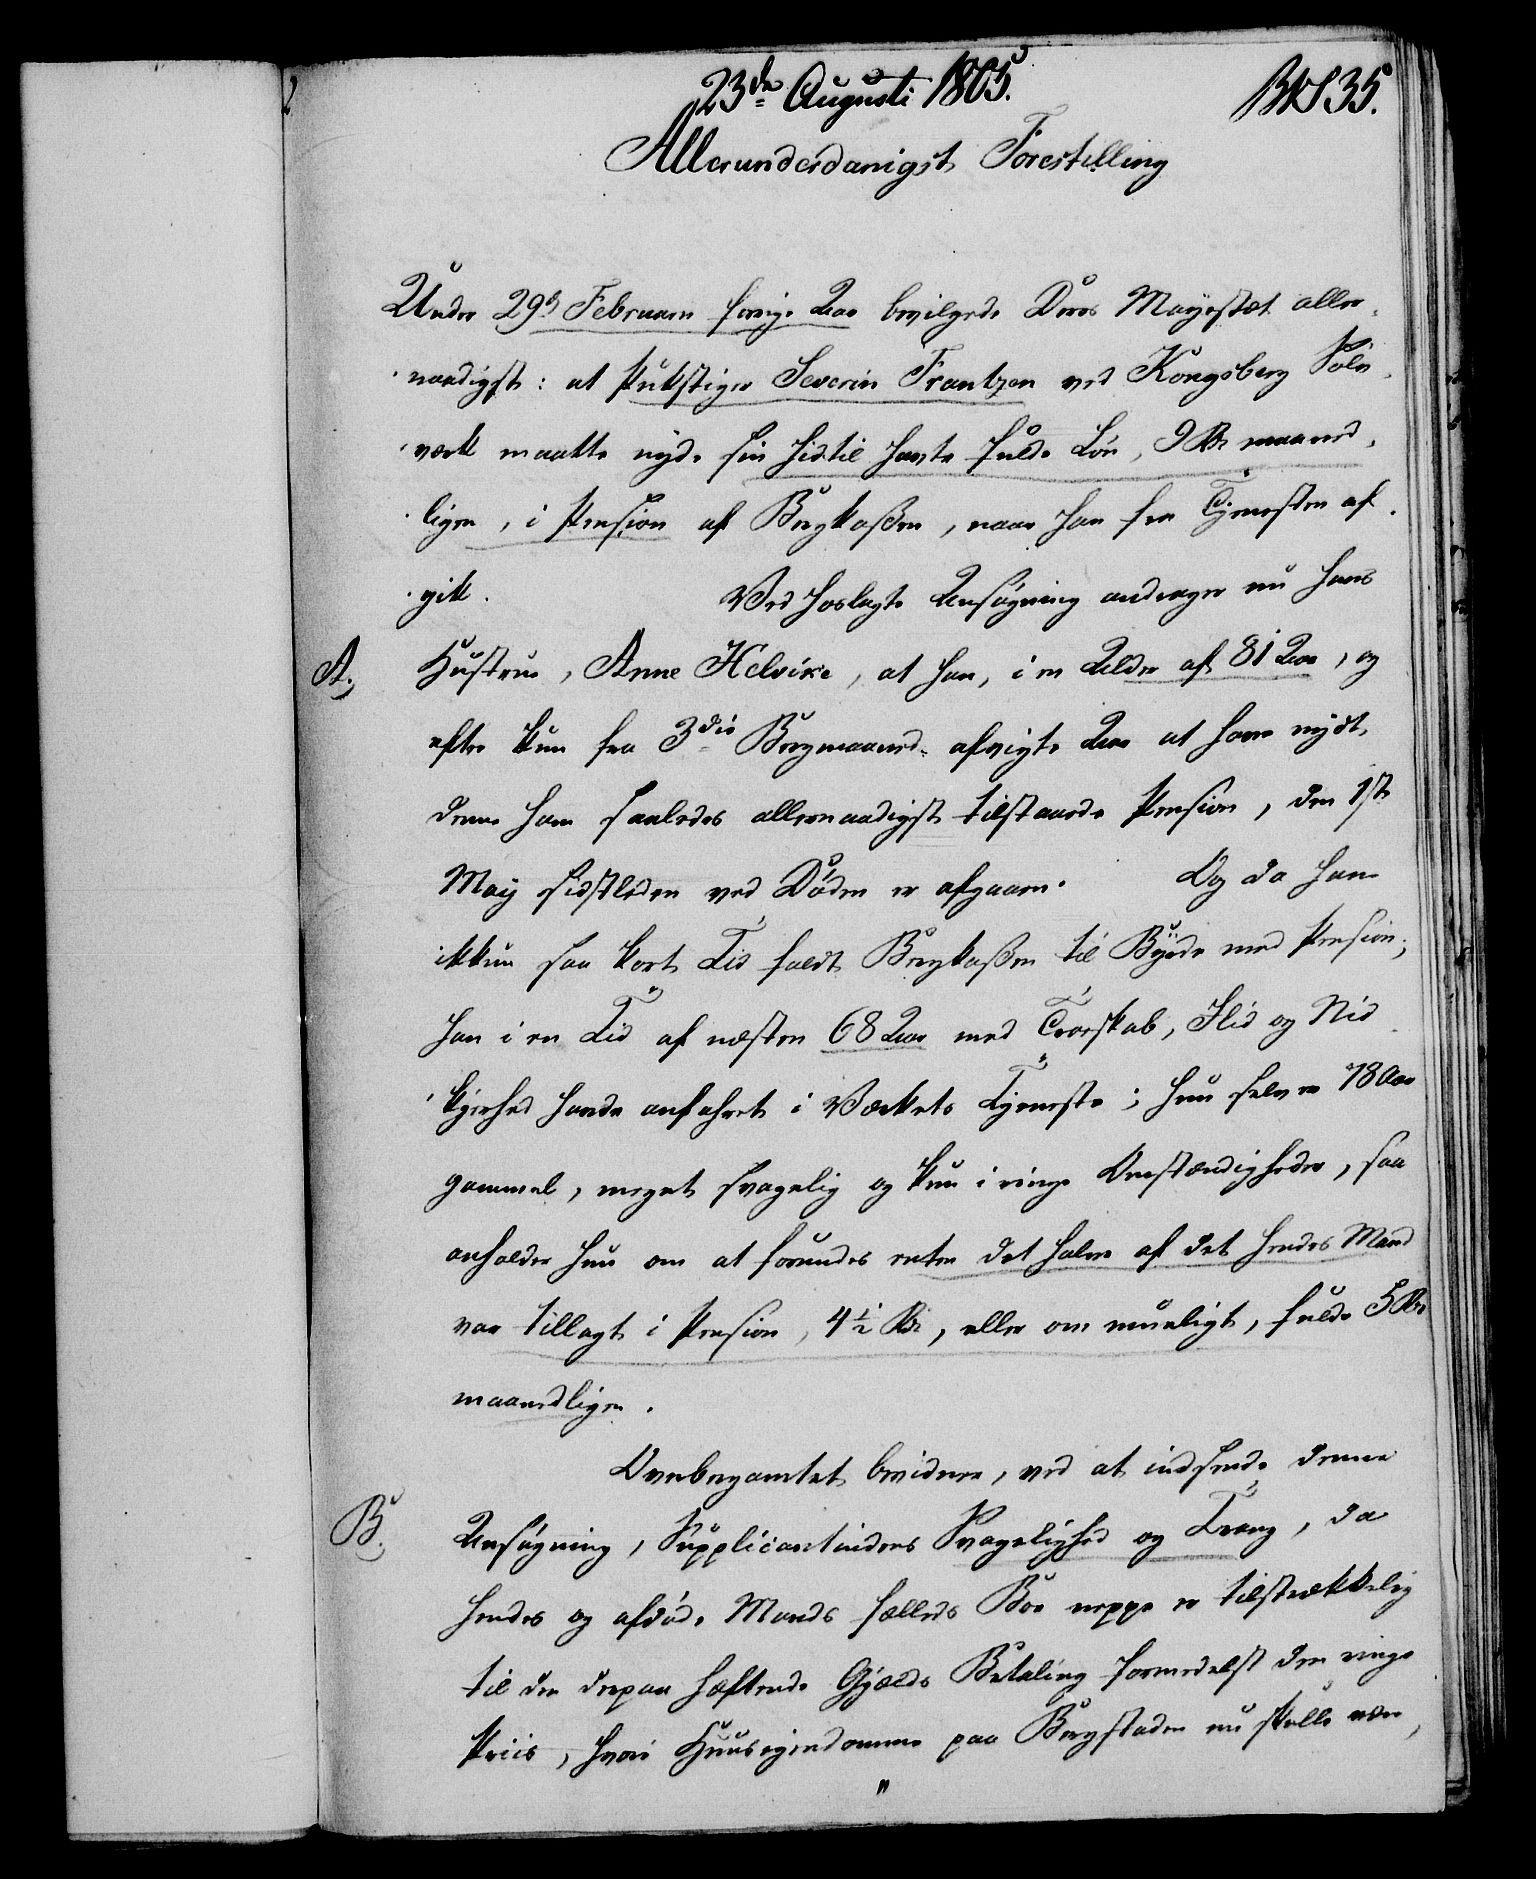 23de Augusti 1805.
BKS 35.
Allerunderdanigst Forestilling
Under 29de Februarii forrige Aar bevilgede Deres Mayestæt aller-
naadigst: at Pukstiger Severin Frantzen ved Kongsberg Sølv-
værk maatte nyde sin hidtil havte fulde Løn, 9 Rd maaned-
ligen, i Pension af Bergkaßen, naar han fra Tjenesten af-
gik. Ved hoslagte Ansøgning andrager nu hans
A.) Hustrue, Anne Helvike, at han, i en Alder af 81 Aar, og
efter kun fra 3die Bergmaaned afvigte Aar at have nydt
denne ham saaledes allernaadigst tilstaaede Pension, den 1ste
May sidstleden ved Døden er afgaaen. Og da han
ikkun saa kort Tid faldt Bergkaßen til Byrde med Pension;
han i en Tid af næsten 68 Aar med Troeskab, Flid og Nid-
kjerhed havde anføhret i Værkets Tjeneste; hun selv er 78 Aar
gammel, meget svagelig og kun i ringe Omstændigheder, saa
anholder hun om at forundes enten det halve af det hendes Mand
var tillagt i Pension, 4½ Rd, eller om mueligt, fulde 5 Rd
maanedligen.
Overbergamtet bevidner, ved at indsende denne
B.) Ansøgning, Supplicantindens Svagelighed og Trang, da
hendes og afdøde Mands fælleds Boe neppe er tilstrækkelig
til den derpaa hæftende Gjælds Betaling formedelst den ringe
Priis, hvori Huuseiendomme paa Bergstaden nu skulle være,